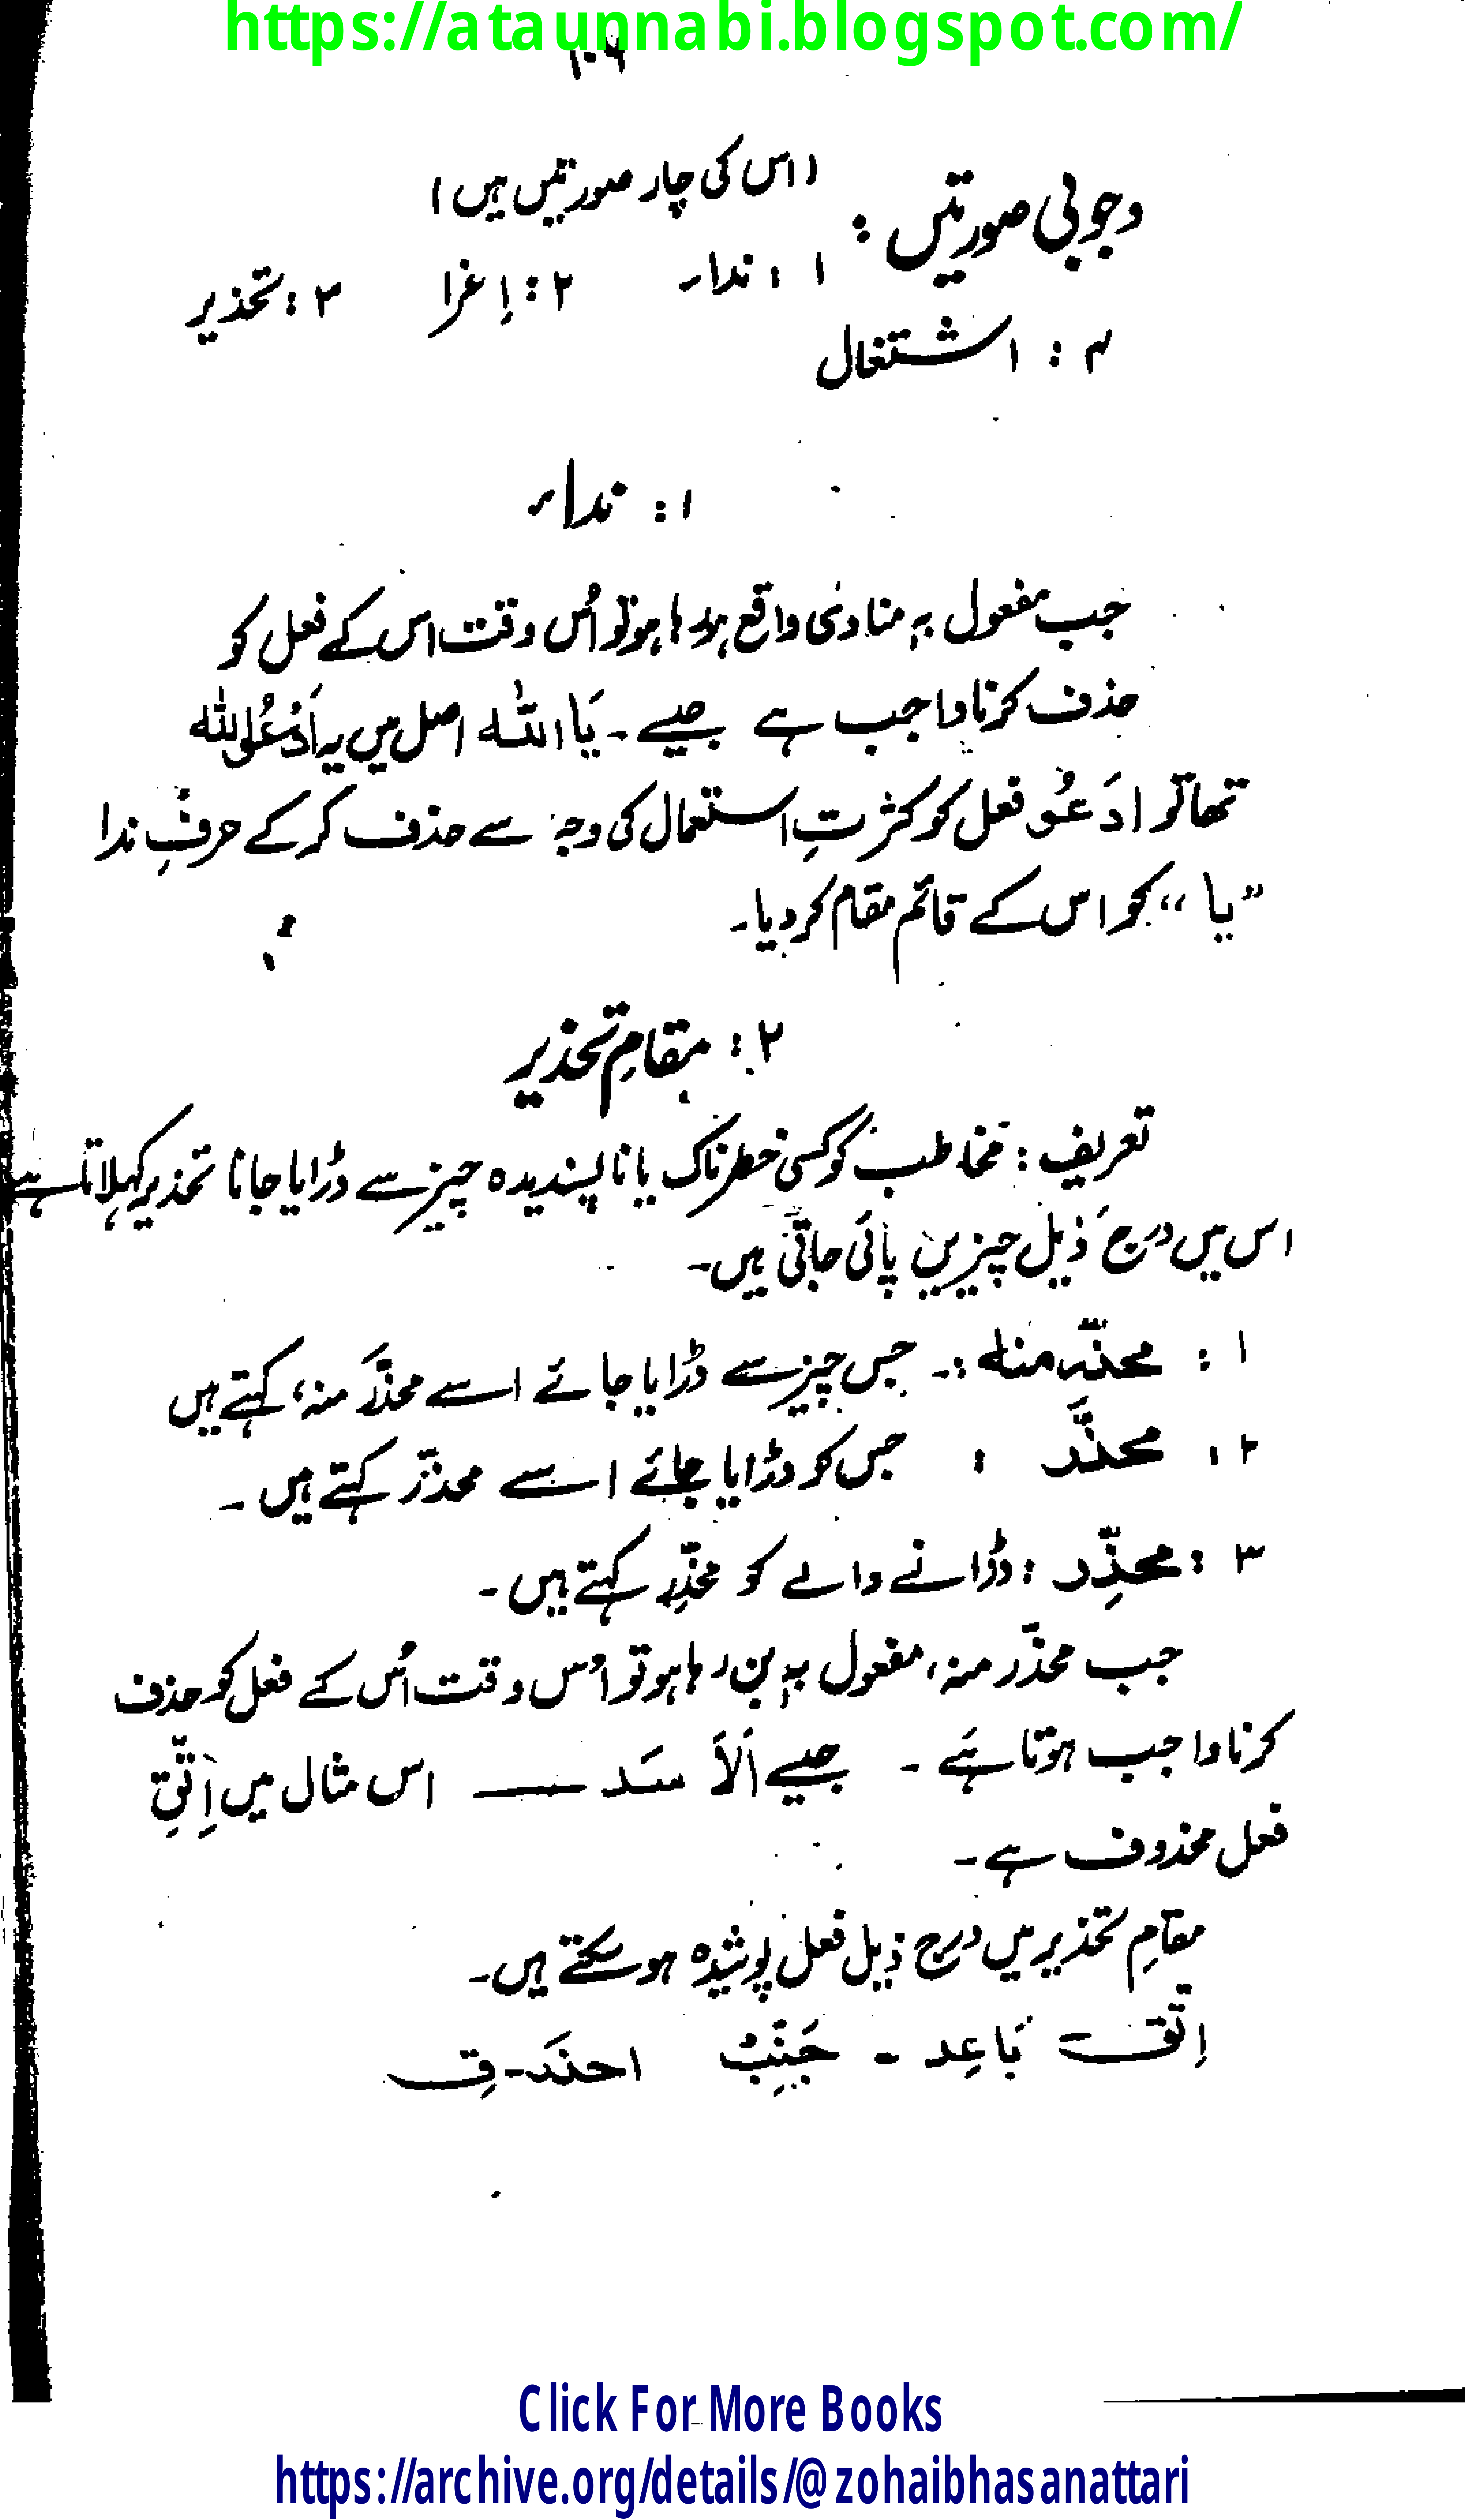 https://ataunnabi.blogspot.com/
۱۰۹
وجوبی صورتیں : (اس کی چار صورتیں ہیں)
۱ : نداء ۲ : اِغرا ۳ : تحذیر
۴ : اشتغال
۱ : نداء
جب مفعول بہٖ منادٰی واقع ہو رہا ہو تو اُس وقت اس کے فعل کو
حذف کرنا واجب ہے جیسے ۔ یَا اللہ اصل میں یہ اَدْعُو اللہ
تھا تو ادَعُو فعل کو کثرتِ استعمال کی وجہ سے حذف کر کے حرفِ ندا
”یا“ کو اس کے قائم مقام کر دیا۔
۲ : مقامِ تحذیر
تعریف : مخاطب کو کسی خطرناک یا ناپسندیدہ چیز سے ڈرایا جانا تحذیر کہلاتا ہے
اس میں درج ذیل چیزیں پائی جاتی ہیں۔
۱ : محذّر منہ :۔ جس چیز سے ڈرایا جائے اسے محذَّر منہ، کہتے ہیں
۲ : محذَّر : جس کو ڈرایا جائے اسے محذَّر کہتے ہیں ۔
۳ : محذِّر : ڈرانے والے کو محذِّر کہتے ہیں ۔
جب محذّر منہ، مفعول بہٖ بن رہا ہو تو اُس وقت اُس کے فعل کو حذف
کرنا واجب ہوتا ہے ۔ جیسے اَلاَسَد ــــ اس مثال میں اِتَّقِ
فعل محذوف ہے ۔
مقامِ تحذیر میں درج ذیل فعل پوشیدہ ہو سکتے ہیں۔
اِتَّقِ بَاعِد - جَنِّبْ احذَر - قِ
Click For More Books
https://archive.org/details/@zohaibhasanattari